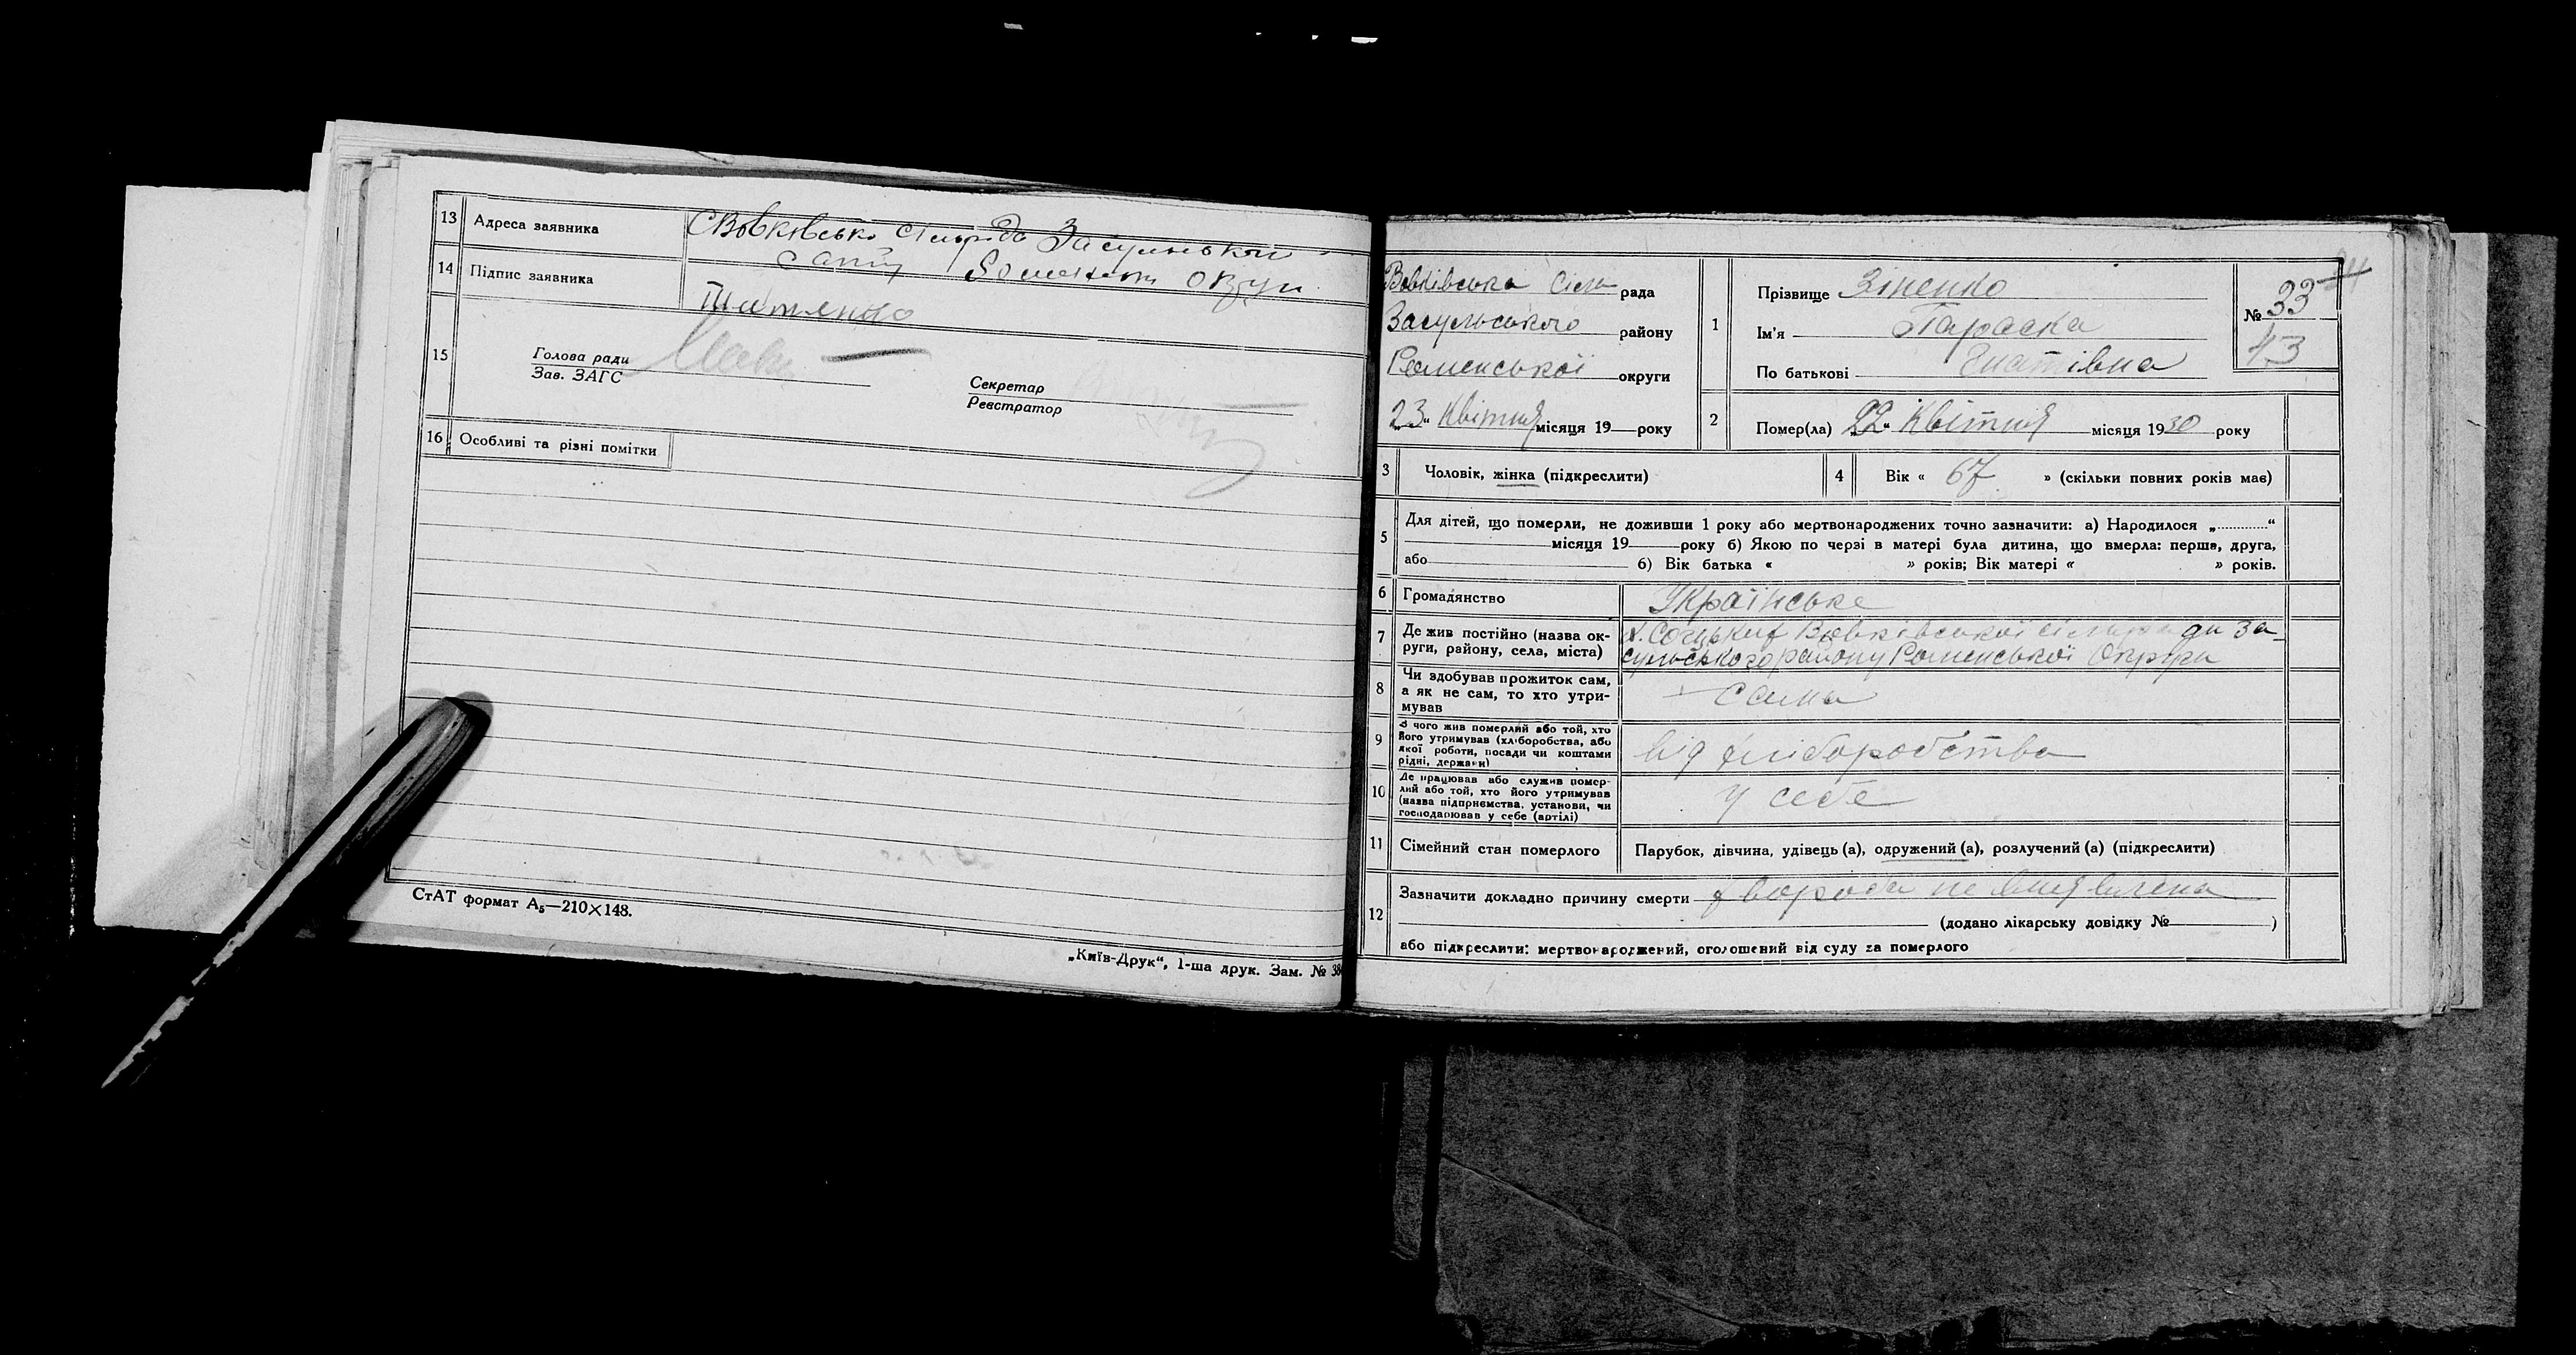 13 Адреса заявника
14 Підпис заявника
15
Голова ради
Зав. ЗАГС
Секретар
Реєстратор
16 Особливі та різні помітки
СтАТ формат А5—210×148.
„Київ-Друк“, 1-ша друк. Зам. № 38
Вовківська Сіль рада
Засульського району
Роменської округи
„23“ Квітня місяця 19 року
1 Прізвище Зіненко
Ім'я Параска
По батькові Гнатівна
№ 33
43
2 Помер(ла) „22“ Квітня місяця 1930 року
3 Чоловік, жінка (підкреслити)
4 Вік « 67 » (скільки повних років має)
5 Для дітей, що померли, не доживши 1 року або мертвонароджених точно зазначити: а) Народилося „ “
місяця 19 року б) Якою по черзі в матері була дитина, що вмерла: перша, друга,
або б) Вік батька « » років; Вік матері « » років.
6 Громадянство Українське
7 Де жив постійно (назва ок-
руги, району, села, міста)
Вовківської сільради За-
сульського району Роменської Округи
8 Чи здобував прожиток сам,
а як не сам, то хто утри-
мував
сама
9 З чого жив померлий або той, хто
його утримував (хліборобства, або
якої роботи, посади чи коштами
рідні, держави)
від хліборобства
10 Де працював або служив помер-
лий або той, хто його утримував
(назва підприємства, установи, чи
господарював у себе (артілі)
у себе
11 Сімейний стан померлого Парубок, дівчина, удівець (а), одружений (а), розлучений (а) (підкреслити)
12 Зазначити докладно причину смерти хвороба не виявлена
(додано лікарську довідку № )
або підкреслити: мертвонароджений, оголошений від суду за померлого